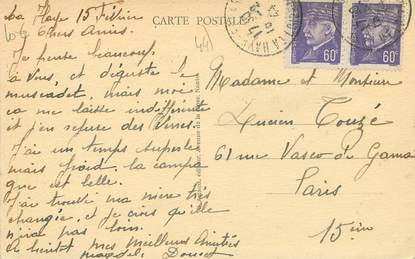 CARTE POSTALE
La Haye 15 Février
Chers Amis.
Je pense beaucoup
à Vous, et déguste le
muscadet, mais moi
ça me laisse indifférent
et j'en refuse des Verres.
J'ai un temps superbe
mais froid. la campa
que est belle.
J'ai trouvé ma mère très
changée, et je crois qu'elle
n'ira pas loin.
A bientôt mes Meilleures Amitiés
60c
60c
44
Madame et Monsieur
Lucien Touzé
61 rue Vasco de Gama
Paris
15 èm